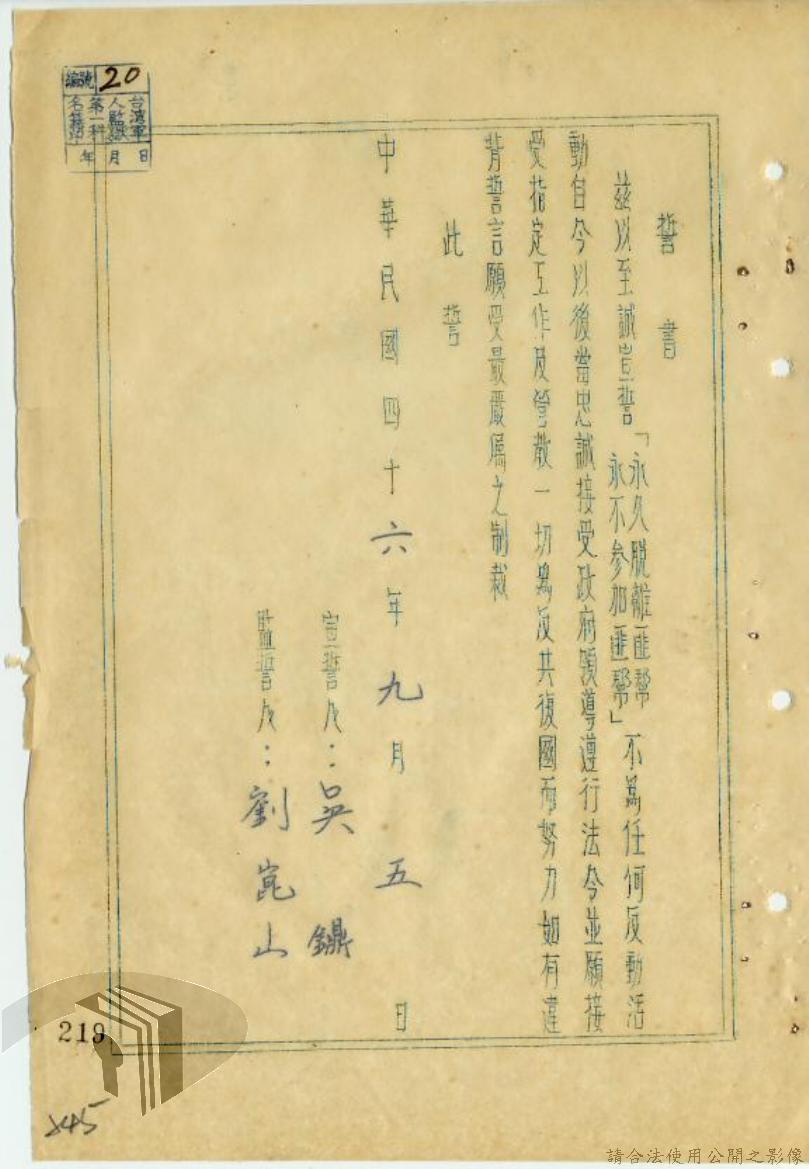 編號 20
台灣軍
人監獄
第一科
年 月 日
誓書
茲以至誠宣誓「永久脫離匪幫
永不参加匪幫」不爲任何反動活
動自今以後當忠誠接受政府領導遵行法令並願接
受指定工作及一切爲反共復國而努力如有違
背誓言願受最嚴厲之制裁
此誓
中華民國四十六年九月五日
宣誓人：吳鐤
監誓人：劉崑山
219
245
請合法使用公開之影像